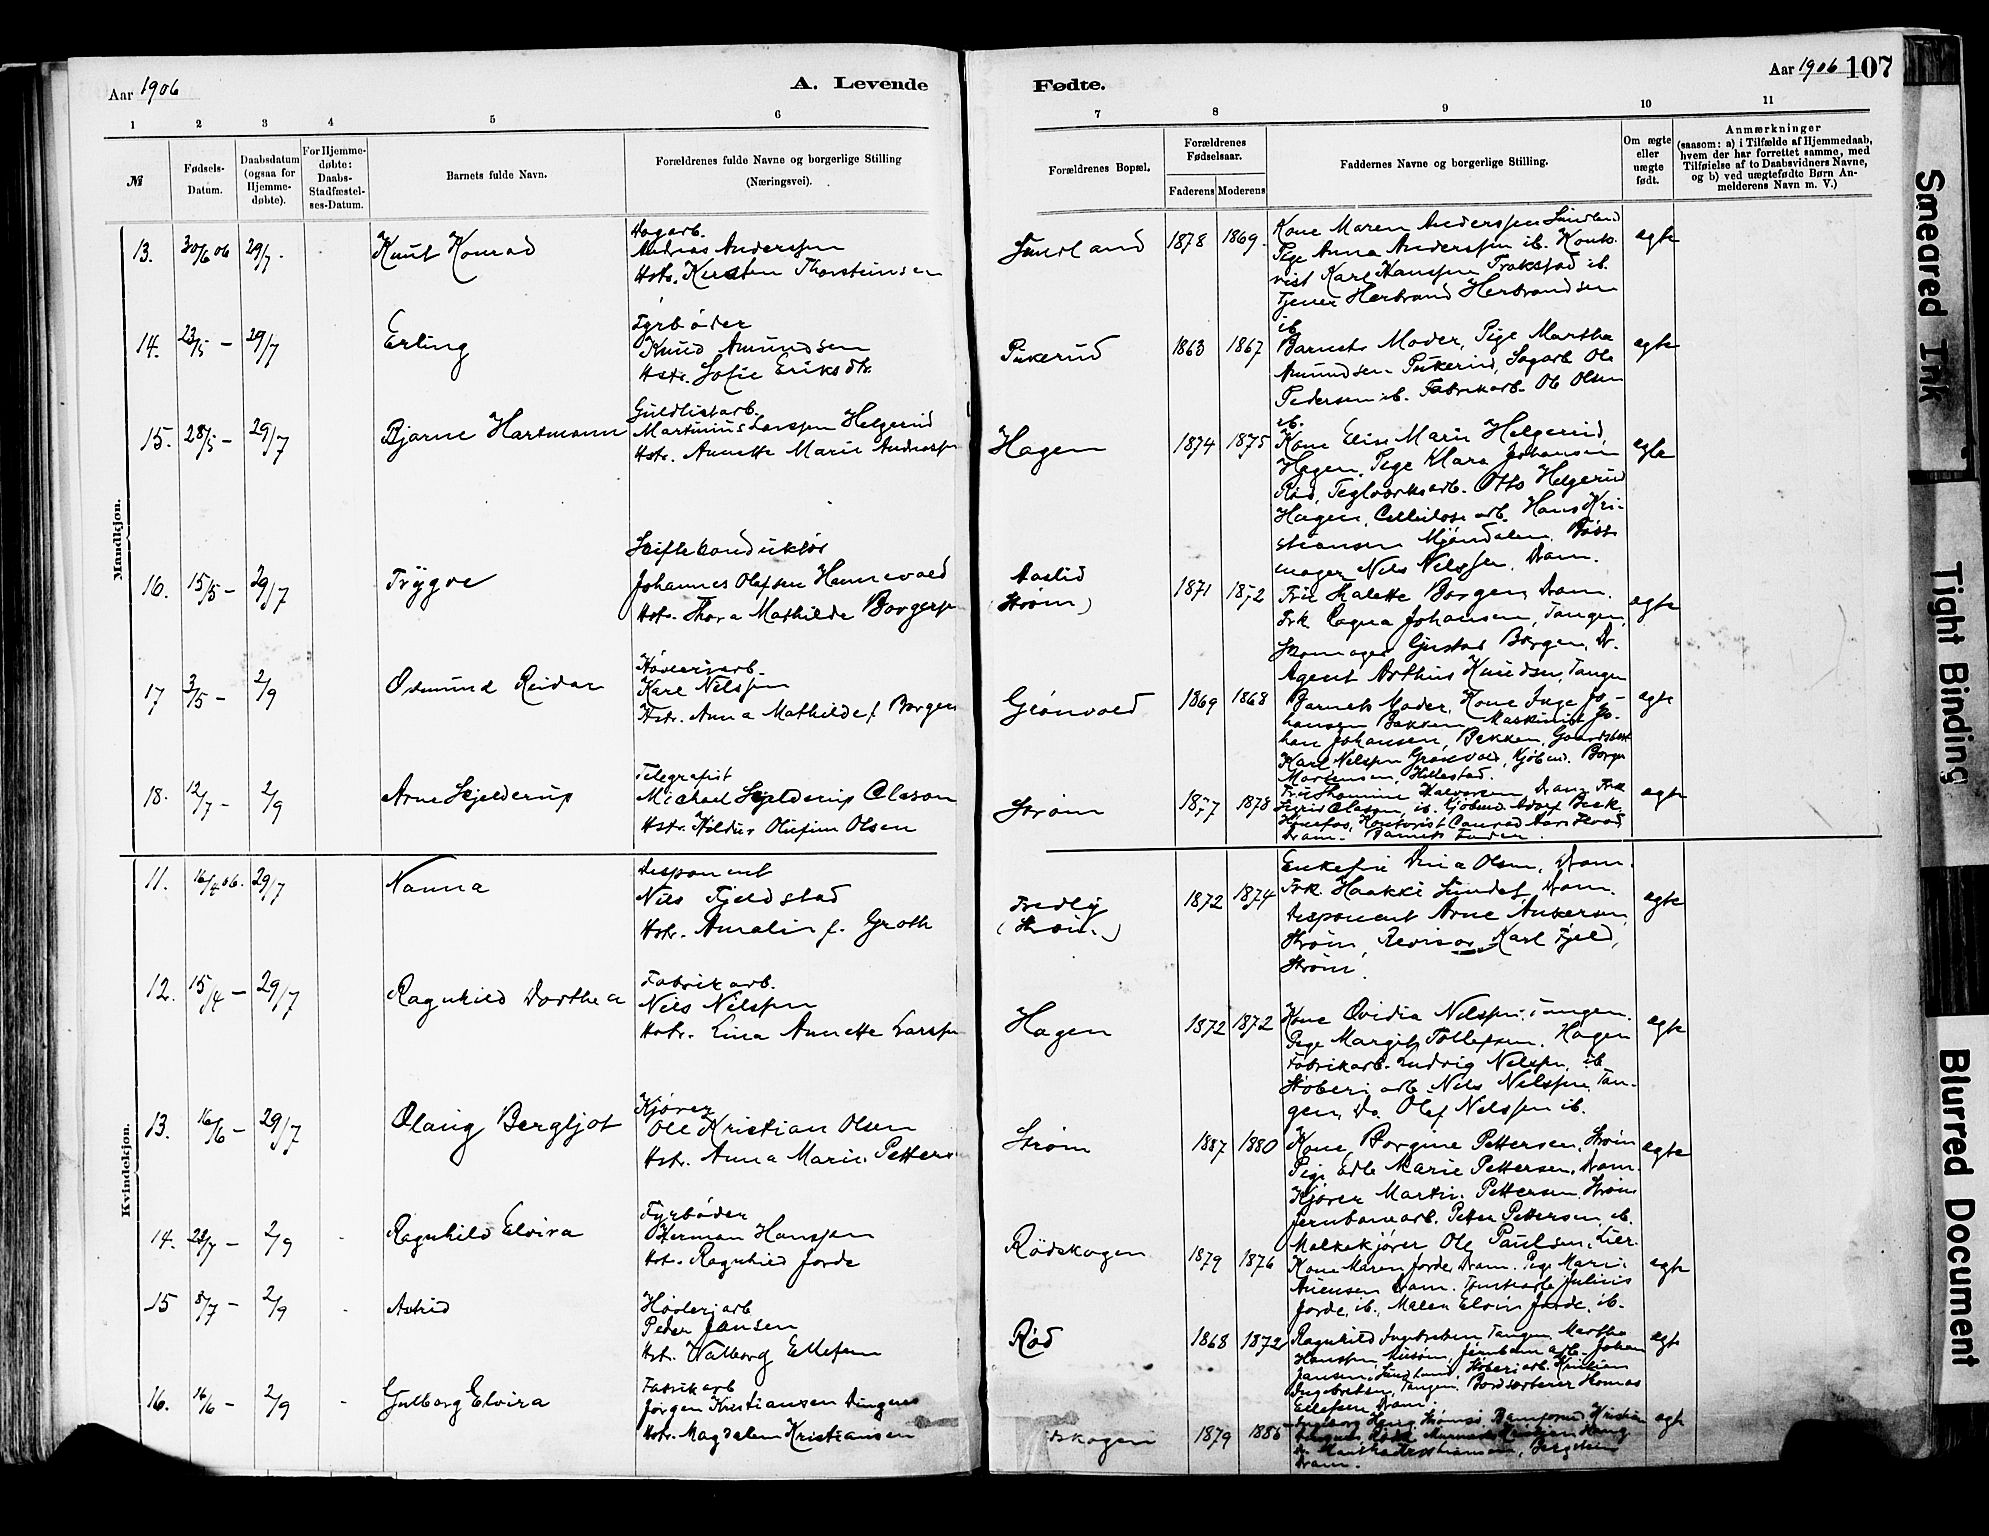 Aar 1906
A. Levende
Fødte.
Aar 1906 107
1 2 3 4 5 6
7 8 9 10 11
№
Fødsels-
Datum.
Daabsdatum
(ogsaa for
Hjemme-
døbte).
For Hjemme-
døbte:
Daabs-
Stadfæstel-
ses-Datum.
Barnets fulde Navn.
Forældrenes fulde Navne og borgerlige Stilling
(Næringsvei).
Forældrenes Bopæl.
Forældrenes
Fødselsaar.
Faderens Moderens
Faddernes Navne og borgerlige Stilling.
Om ægte
eller
uægte
født.
Anmærkninger
(saasom: a) i Tilfælde af Hjemmedaab,
hvem der har forrettet samme, med
Tilføielse af to Daabsvidners Navne,
og b) ved uægtefødte Børn An-
melderens Navn m. V.)
Mandkjøn.
13. 30/6 06 29/7. Knut Konrad
Dagarb.
Andreas Anderssen
Hstr. Kirsten Thorsteinsen
Sundland 1878 1869. egte
Kone Maren Anderssen Sundland
Pige Anna Anderssen ib. Konto-
rist Karl Hanssen Frokstad ib.
Tjener Herbrand Herbrandsen
ib.
14. 23/5 – 29/7 Erling
Fyrbøder
Knud Amundsen
Hstr. Sofie Eriksdtr.
Pukerud 1863 1867 egte
Barnets Moder, Pige Martha
Amundsen Pukerud, Sagarb. Ole
Pedersen ib. Fabrikarb. Ole Olsen
ib.
15. 28/5 – 29/7 Bjarne Hartmann
Guldlistarb.
Martinius Larssen Helgerud
Hstr. Annette Marie Andreassen
Hagen 1874 1875 egte
Kone Elise Marie Helgerud,
Hagen, Pige Klara Johansen
Rød, Teglværksarb. Otto Helgerud
Hagen, Cellulose arb. Hans Kri-
stiansen Mjøndalen,
mager Nils Nilssen, Dram.
16. 15/5 – 29/7 Trygve
Skiftekonduktør
Johannes Olafsen Hannevold
Hstr. Thora Mathilde Borgersen
Aaslid
(Strøm) 1871 1872 egte
Fru Halette Borgen, Dram.
Frk. Ragna Johansen, Tangen,
Skomager Gustav Borgen, Dr.
Agent Arthur Knudsen, Tangen
17 3/5 – 2/9 Odmund Reidar
Høvleriarb.
Karl Nilssen
Hstr. Anna Mathilde f. Borgen
Grönvold 1869 1868 egte
Barnets Moder, Kone Inga Jo-
hansen Bekken, Maskinist Jo-
han Johansen, Bekken, Gaardsbest.
Karl Nilssen Grønvold, Kjøbmd. Borger
Mortensen, Hillestad.
18. 12/7 – 2/9 Arne Skjelderup
Telegrafist
Michael Skjelderup Clason
Hstr. Hildur Olufine Olsen
Strøm 1877 1878 egte
Fru Thomine Halvorsen, Dram, Frk.
Sigrid Clason, ib. Kjøbmd. Adolf Beck
Hønefos, Kontorist Conrad Aars Flood
Dram. Barnets Fader.
Kvindekjøn.
11. 16/4 06. 29/7 Nanna
Disponent
Nils Fjeldstad
Hstr. Amalie f. Groth
Fredly
(Strøm.) 1872 1874 egte
Enkefru Dina Olsen, Dram.
Frk. Haakki Sundet, Dram.
Disponent Arne Ankersen,
Strøm, Revisor Karl Fjeld,
Strøm.
12. 15/4 – 29/7 Ragnhild Dorthea
Fabrikarb.
Nils Nilssen
Hstr. Lina Annette Larssen
Hagen 1872 1872 egte
Kone Ovidia Nilssen, Tangen.
Pige Margit Tollefsen, Hagen
Fabrikarb. Ludvig Nilssen, ib.
Støberi arb. Nils Nilssen, Tan-
gen, Do. Olef Nilssen ib.
13. 16/6 – 29/7 Olaug Bergljot
Kjører
Ole Kristian Olsen
Hstr. Anna Marie Petters
Strøm 1887 1880 egte
Kone Borgine Pettersen, Strøm
Pige Edle Marie Pettersen, Dram.
Kjører Martin Pettersen, Strøm
Jernbanearb. Petter Pettersen, ib.
Melkekjører Ole Paulsen, Lier.
14. 22/7 – 2/9 Ragnhild Elvira
Fyrbøder
Herman Hanssen
Hst. Ragnhild Jorde
Rödskogen 1879 1876 egte
Kone Maren Jorde, Dram. Pige Marie
Arensen, Dram. Tomtearb. Julius
Jorde, ib., Maler Elvin Jorde, ib.
15 8/7 – 2/9 Astrid
Høvleriarb
Peder Jansen
Hst. Valborg Ellefsen
Rød 1868 1872 egte
Ragnhild Ingebretsen Tangen, Martha
Hanssen, Jernbanearb. Johan
Jansen, Sundland, Støberiarb. Kristian
Ingebretsen, Tangen, Bordsorterer Thomas
Ellefsen, Dram.
16. 16/6 – 2/9 Gulborg Elvira
Fabrikarb
Jørgen Kristiansen Dingnes
Hstr. Magdalene Kristiansen
dskogen 1879 1886 egte
Dram.
Smeared Ink
Tight Binding
Blurred Document